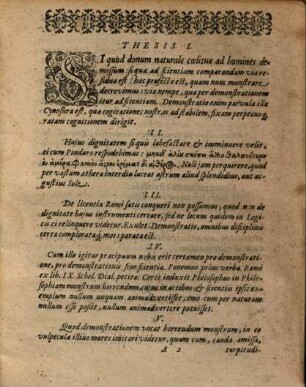 THESIS I.
SI quod donum naturale cœlitus ad homines de-
missum, si quæ ad scientiam comparandam via re-
sidua est: hæc profectò est, quam nunc monstrare
decrevimus: via nempe, qua per demonstrationem
itur ad scientiam. Demonstratio enim parvula illa
Cynosura est, quæ cogitationes nostras ad stabilem, fixam perpetuò
ratam cognitionem dirigit.
II.
Hujus dignitatem si quis labefactare & imminuere velit,
ei cum Pindaro respondebimus:
Noli jam perquirere, quod
per vastum æthera interdiu luceat astrum aliud splendidius, aut au-
gustius Sole.
III.
De licentia Rami satis conqueri non possumus, quod
dignitate hujus instrumenti certare, sed ne locum quidem in Logi-
cis ei relinquere videtur. Exulet Demonstratio, omnibus disciplinis
certa comploratáque mors parata est.
IV.
Cum illo igitur præcipuum nobis erit certamen pro demonstrati-
one, pro demonstrationis fine scientia. Ponemus prius verba. Rami
ex lib. IX. Schol. Dial. petita: Certè induxit Philosophus in Philo-
sophiam monstrum horrendum, cujus in artibus & scientiis ipse ex-
emplum nullum unquam animadvertisset, imò cum per naturam
nullum esse possit, nullum animadvertere potuisset.
V.
Quod demonstrationem vocat horrendum monstrum, in eo
vulpecula illius mores imitari videtur, quæ cum, cauda amissa,
A 2 turpitudi-